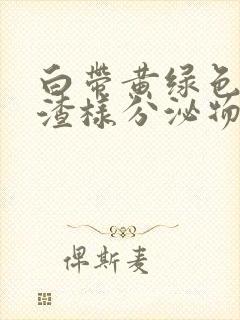 白带黄绿色
渣样分泌物
俾斯麦